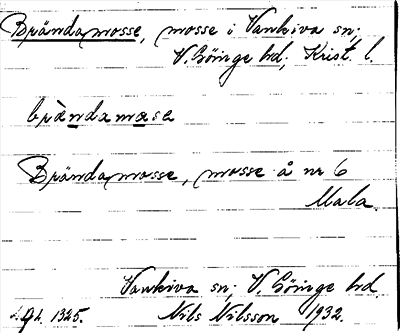 Brändamosse, mosse i Vankiva sn;
V. Göinge hd; Krist. l.
bràndamasa
Brändamosse, mosse å nr 6
Mala.
Vankiva sn; V. Göinge hd.
1325. Nils Nilsson 1932.